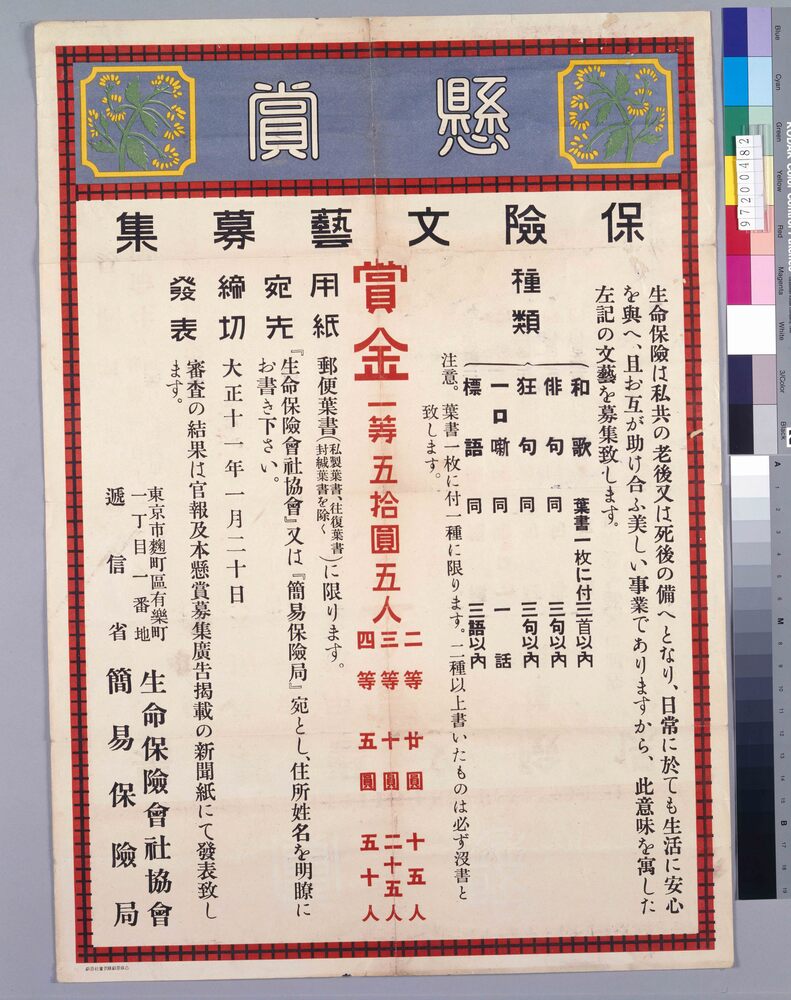 懸賞
保險文藝募集
生命保險は私共の老後又は死後の備へとなり、日常に於ても生活に安心
を與へ、且お互が助け合ふ美しい事業でありますから、此意味を寓した
左記の文藝を募集致します。
種類
和歌 葉書一枚に付三首以內
俳句 同 三句以內
狂句 同 三句以內
一口噺 同 一話
標語 同 三語以內
注意。葉書一枚に付一種に限ります。二種以上書いたものは必ず沒書と
致します。
賞金 一等 五拾圓 五人
二等 廿圓 十五人
三等 十圓 二十五人
四等 五圓 五十人
用紙 郵便葉書(私製葉書、往復葉書封緘葉書を除く)に限ります。
宛先 『生命保險會社協會』又は『簡易保險局』宛とし、住所姓名を明瞭に
お書き下さい。
締切 大正十一年一月二十日
發表 審査の結果は官報及本懸賞募集廣告揭載の新聞紙にて發表致し
ます。
東京市麴町區有樂町
一丁目一番地
生命保險會社協會
遞信省 簡易保險局
97200482
Blue
Cyan
Green
Yellow
Red
Magenta
White
3/Color
Black
A
M
B